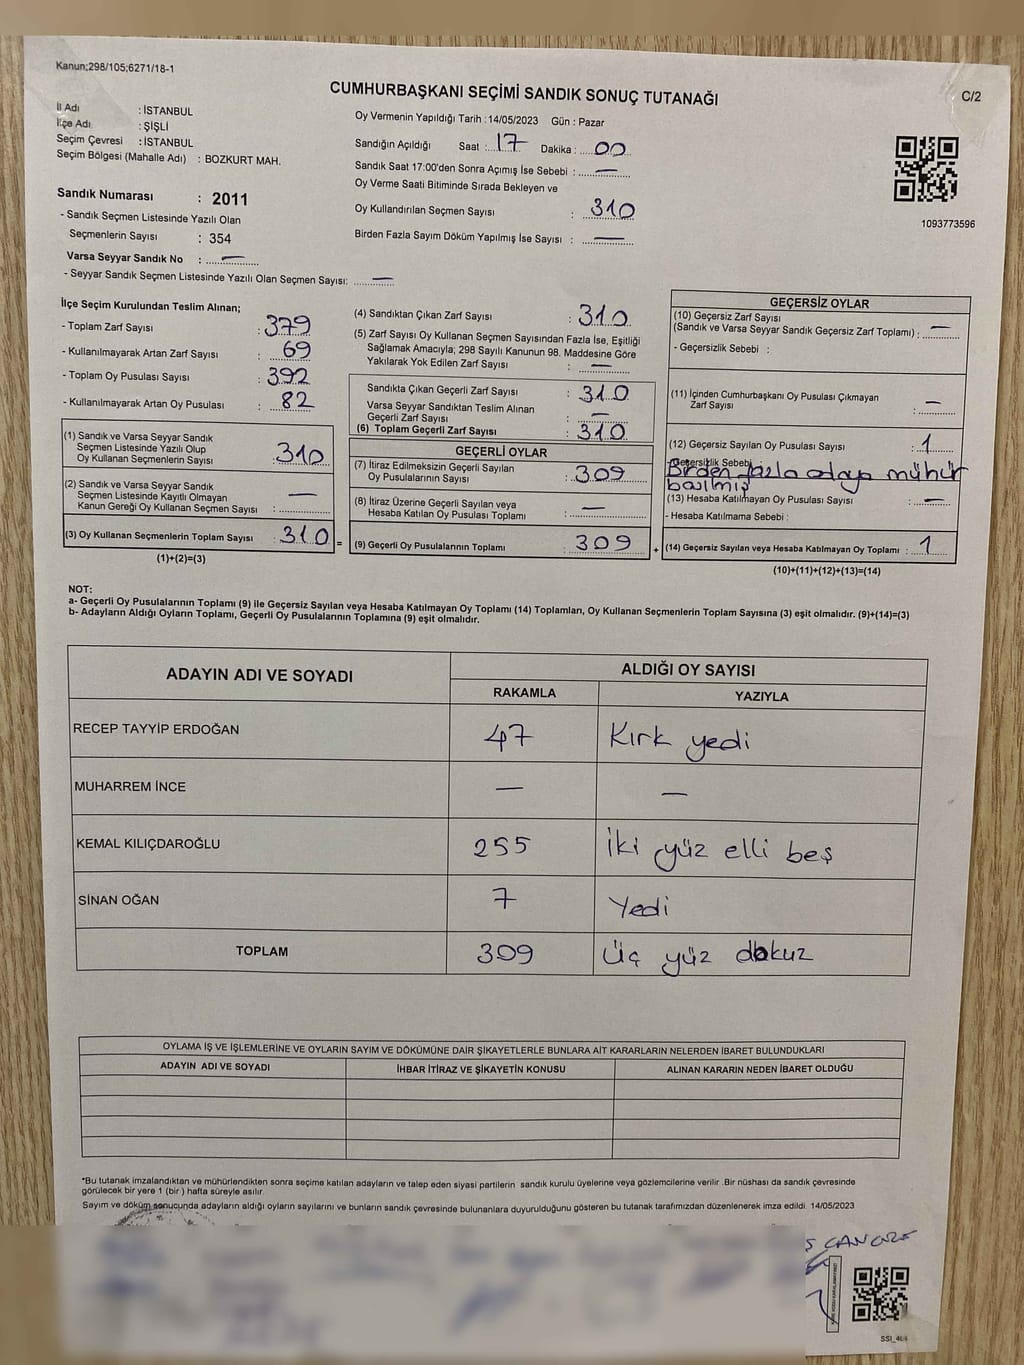 Kanun;298/105;6271/18-1
CUMHURBAŞKANI SEÇİMİ SANDIK SONUÇ TUTANAĞI
C/2
İl Adı : İSTANBUL
İlçe Adı : ŞİŞLİ
Seçim Çevresi : İSTANBUL
Seçim Bölgesi (Mahalle Adı) : BOZKURT MAH.
Sandık Numarası : 2011
- Sandık Seçmen Listesinde Yazılı Olan
Seçmenlerin Sayısı : 354
Varsa Seyyar Sandık No : —
- Seyyar Sandık Seçmen Listesinde Yazılı Olan Seçmen Sayısı: —
Oy Vermenin Yapıldığı Tarih : 14/05/2023 Gün : Pazar
Sandığın Açıldığı Saat : 17 Dakika : 00
Sandık Saat 17:00'den Sonra Açımış İse Sebebi : —
Oy Verme Saati Bitiminde Sırada Bekleyen ve
Oy Kullandırılan Seçmen Sayısı : 310
Birden Fazla Sayım Döküm Yapılmış İse Sayısı : —
1093773596
İlçe Seçim Kurulundan Teslim Alınan;
- Toplam Zarf Sayısı : 379
- Kullanılmayarak Artan Zarf Sayısı : 69
- Toplam Oy Pusulası Sayısı : 392
- Kullanılmayarak Artan Oy Pusulası : 82
(1) Sandık ve Varsa Seyyar Sandık
Seçmen Listesinde Yazılı Olup
Oy Kullanan Seçmenlerin Sayısı : 310
(2) Sandık ve Varsa Seyyar Sandık
Seçmen Listesinde Kayıtlı Olmayan
Kanun Gereği Oy Kullanan Seçmen Sayısı : —
(3) Oy Kullanan Seçmenlerin Toplam Sayısı : 310 =
(1)+(2)=(3)
(4) Sandıktan Çıkan Zarf Sayısı : 310
(5) Zarf Sayısı Oy Kullanan Seçmen Sayısından Fazla İse, Eşitliği
Sağlamak Amacıyla; 298 Sayılı Kanunun 98. Maddesine Göre
Yakılarak Yok Edilen Zarf Sayısı : —
Sandıkta Çıkan Geçerli Zarf Sayısı : 310
Varsa Seyyar Sandıktan Teslim Alınan
Geçerli Zarf Sayısı : —
(6) Toplam Geçerli Zarf Sayısı : 310
GEÇERLİ OYLAR
(7) İtiraz Edilmeksizin Geçerli Sayılan
Oy Pusulalarının Sayısı : 309
(8) İtiraz Üzerine Geçerli Sayılan veya
Hesaba Katılan Oy Pusulası Toplamı : —
(9) Geçerli Oy Pusulalarının Toplamı : 309 +
GEÇERSİZ OYLAR
(10) Geçersiz Zarf Sayısı
(Sandık ve Varsa Seyyar Sandık Geçersiz Zarf Toplamı) : —
- Geçersizlik Sebebi :
(11) İçinden Cumhurbaşkanı Oy Pusulası Çıkmayan
Zarf Sayısı : —
(12) Geçersiz Sayılan Oy Pusulası Sayısı : 1
Geçersizlik Sebebi
Birden fazla adaya mühür
basılmış
(13) Hesaba Katılmayan Oy Pusulası Sayısı : —
- Hesaba Katılmama Sebebi :
(14) Geçersiz Sayılan veya Hesaba Katılmayan Oy Toplamı : 1
(10)+(11)+(12)+(13)=(14)
NOT:
a- Geçerli Oy Pusulalarının Toplamı (9) ile Geçersiz Sayılan veya Hesaba Katılmayan Oy Toplamı (14) Toplamları, Oy Kullanan Seçmenlerin Toplam Sayısına (3) eşit olmalıdır. (9)+(14)=(3)
b- Adayların Aldığı Oyların Toplamı, Geçerli Oy Pusulalarının Toplamına (9) eşit olmalıdır.
ADAYIN ADI VE SOYADI
ALDIĞI OY SAYISI
RAKAMLA YAZIYLA
RECEP TAYYİP ERDOĞAN 47 Kırk yedi
MUHARREM İNCE — —
KEMAL KILIÇDAROĞLU 255 İki yüz elli beş
SİNAN OĞAN 7 Yedi
TOPLAM 309 Üç yüz dokuz
OYLAMA İŞ VE İŞLEMLERİNE VE OYLARIN SAYIM VE DÖKÜMÜNE DAİR ŞİKAYETLERLE BUNLARA AİT KARARLARIN NELERDEN İBARET BULUNDUKLARI
ADAYIN ADI VE SOYADI İHBAR İTİRAZ VE ŞİKAYETİN KONUSU ALINAN KARARIN NEDEN İBARET OLDUĞU
*Bu tutanak imzalandıktan ve mühürlendikten sonra seçime katılan adayların ve talep eden siyasi partilerin sandık kurulu üyelerine veya gözlemcilerine verilir .Bir nüshası da sandık çevresinde
görülecek bir yere 1 (bir) hafta süreyle asılır.
Sayım ve döküm sonucunda adayların aldığı oyların sayılarını ve bunların sandık çevresinde bulunanlara duyurulduğunu gösteren bu tutanak tarafımızdan düzenlenerek imza edildi. 14/05/2023